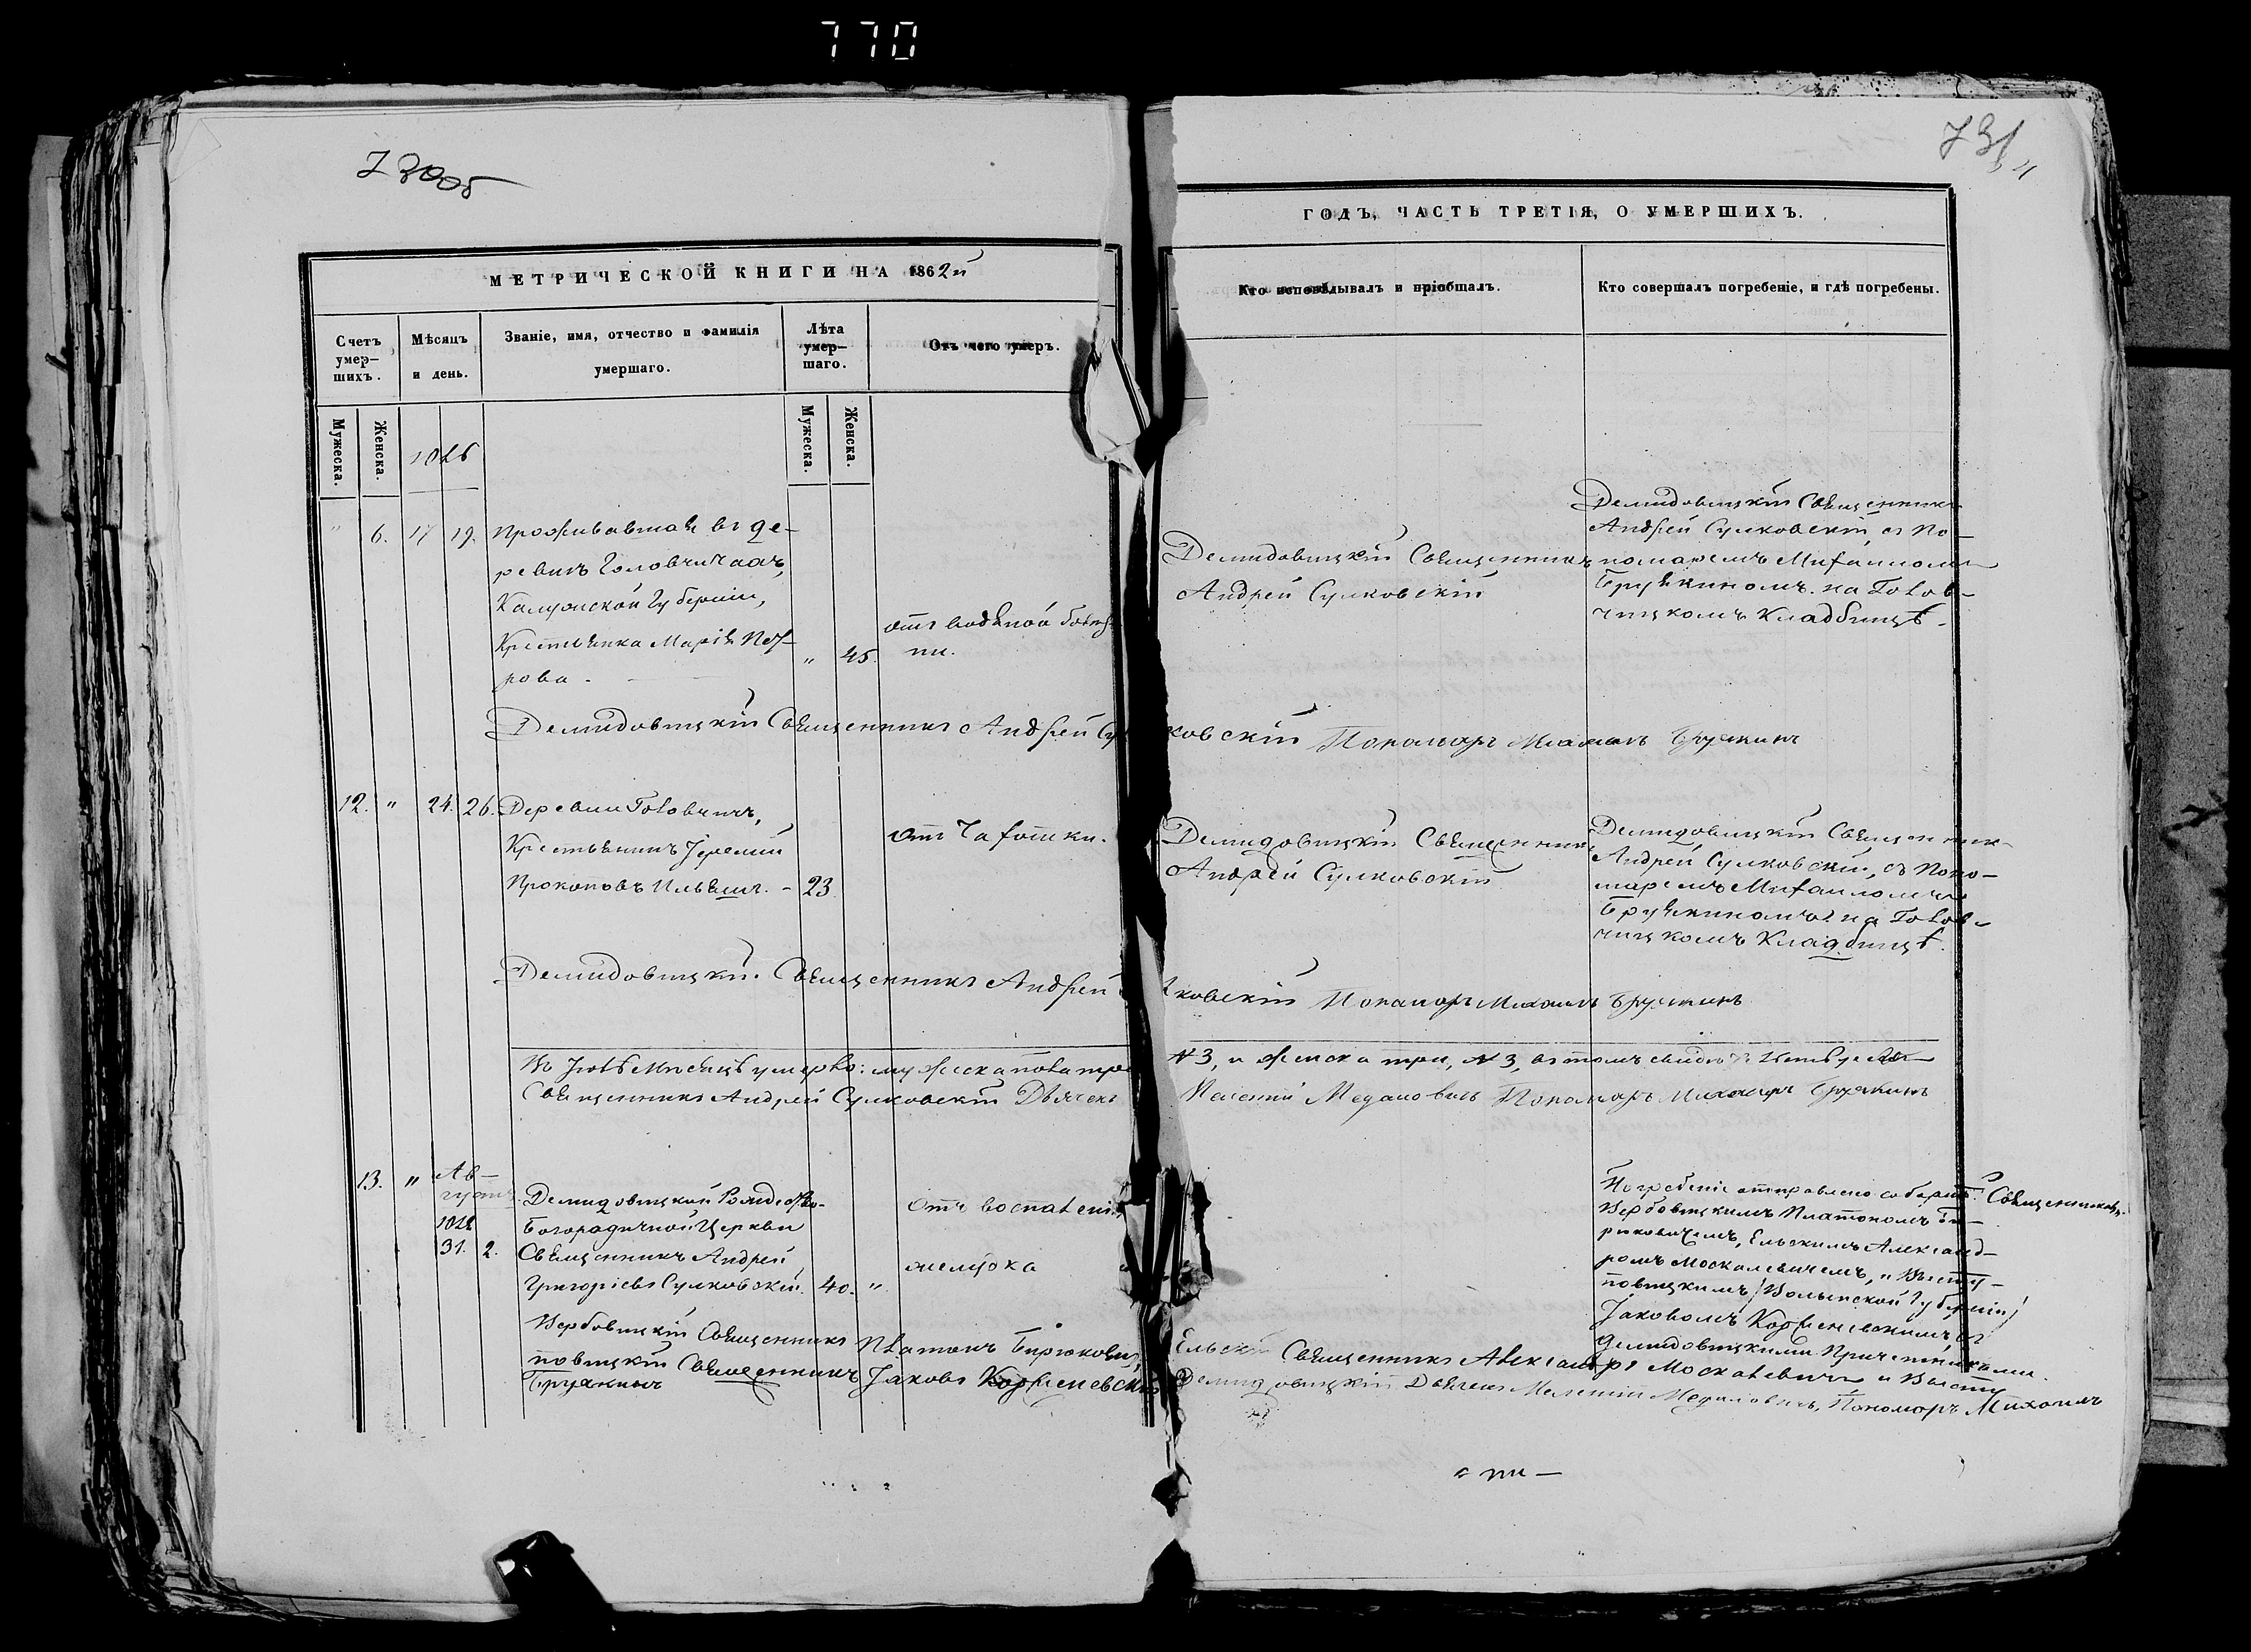 770
730об
731
МЕТРИЧЕСКОЙ КНИГИ НА 1862й
ГОДЪ, ЧАСТЬ ТРЕТІЯ, О УМЕРШИХЪ.
Счетъ умер—шихъ.
Мѣсяцъ и день.
Званіе, имя, отчество и фамилія умершаго.
Лѣта умер—шаго.
Отъ чего умеръ.
Кто исповѣдывалъ и пріобщалъ.
Кто совершалъ погребеніе, и гдѣ погребены.
Мужеска.
Женска.
Мужеска.
Женска.
" 6. 17 19.
Проживавшая въ де-
ревнѣ Головчичахъ,
Калужской Губерніи,
Крестьянка Марія Пет-
рова.
" 45.
отъ водяной
Демидовицкій Священникъ
Андрей Сулковскій
Демидовицкій Священникъ
Андрей Сулковскій, съ По-
номаремъ Михаиломъ
на Голов-
чицкомъ Кладбищѣ.
Демидовицкій Священникъ Андрей Сулковскій Пономарь Михаилъ
12. " 24. 26.
Деревни Головчичъ,
Крестьянинъ Іеремій
Прокоповъ
23
отъ Чахотки.
Демидовицкій Священникъ
Андрей Сулковскій
Демидовицкій Священник-
Андрей Сулковскій, съ Поно-
маремъ Михаиломъ
на Голов-
чицкомъ Кладбищѣ.
Демидовицкій Священникъ Андрей Сулковскій Пономарь Михаилъ
Въ Іюлѣ Мѣсяцѣ умерло: мужеска пола три N3, и женска три, N3, въ томъ
Священникъ Андрей Сулковскій Дьячекъ Мелетій Пономарь Михаилъ
13. "
Ав-
густъ
31. 2.
Демидовицкой Рождество-
Богородичной Церкви
Священникъ Андрей
Григоріевъ Сулковскій.
40. "
отъ воспаленія
желудка
Погребеніе отправлено Священниками,
Вербовицкимъ Платономъ Би-
рюковичемъ, Ельскимъ Александ-
ромъ Москалевичемъ, и
Волынской Губерніи
Іаковомъ
Демидовицкими Причетниками.
Вербовицкій Священникъ Платонъ Бирюковичъ, Ельскій Священникъ Александръ Москалевичъ и
Священникъ Іаковъ Демидовицкій Дьячекъ Мелетій Пономарь Михаилъ